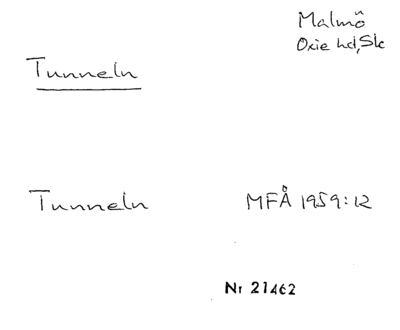 Malmö
Oxie hd, Sk
Tunneln
Tunneln MFÅ 1959:12
Nr 21462